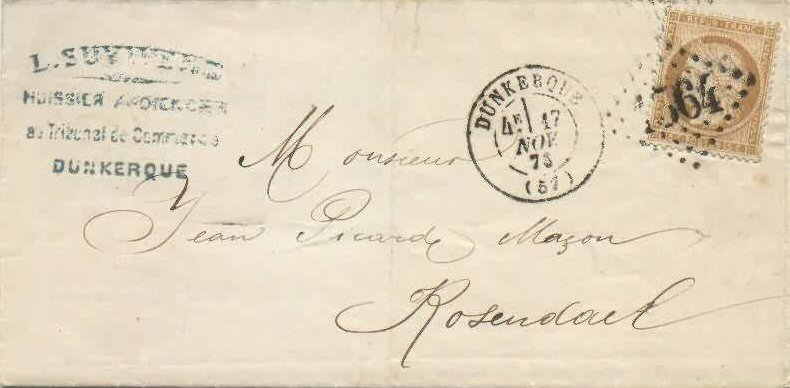 HUISSIER AUDIENCIER
au Tribunal de Commerce
DUNKERQUE
DUNKERQUE
4E 17
NOV.
73
(57)
REPUB. FRANC.
564
Monsieur
Jean Picarde Maçon
Rosendael